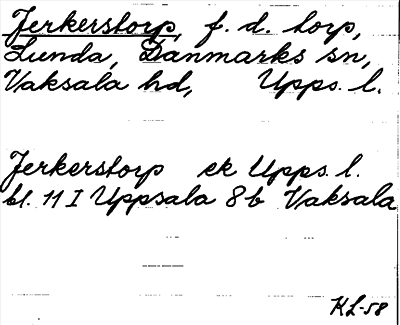 Jerkerstorp, f. d. torp,
Lunda, Danmarks sn,
Vaksala hd, Upps. l.
Jerkerstorp ek Upps. l.
bl. 11 I Uppsala 8b Vaksala
KL-58